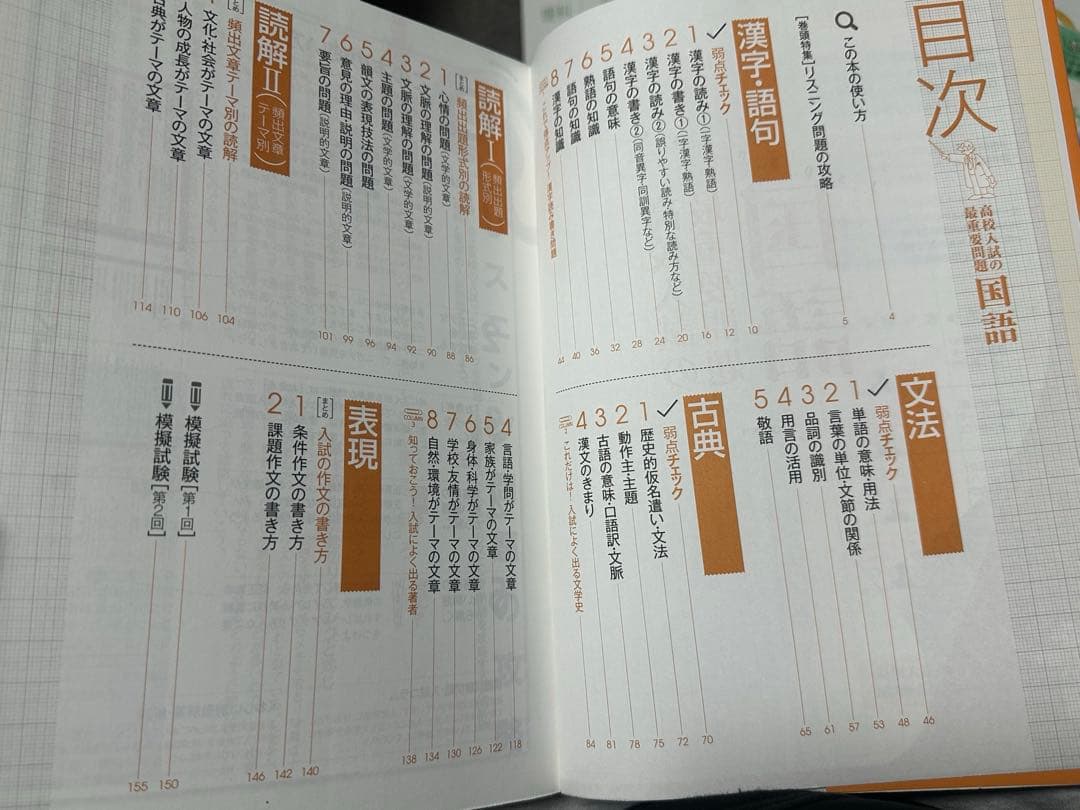 目次
高校入試の
最重要問題
国語
この本の使い方 4
[巻頭特集]リスニング問題の攻略 5
漢字・語句
弱点チェック 10
1 漢字の読み①(一字漢字・熟語) 12
2 漢字の書き①(一字漢字・熟語) 16
3 漢字の読み②(誤りやすい読み・特別な読み方など) 20
4 漢字の書き②(同音異字・同訓異字など) 24
5 語句の意味 28
6 熟語の知識 32
7 語句の知識 36
8 漢字の知識 40
44
文法
弱点チェック 46
1 単語の意味・用法 48
2 言葉の単位・文節の関係 53
3 品詞の識別 57
4 用言の活用 61
5 敬語 65
古典
弱点チェック 70
1 歴史的仮名遣い・文法 72
2 動作主・主題 75
3 古語の意味・口語訳・文脈 78
4 漢文のきまり 81
COLUMN 2 これだけは!入試によく出る文学史 84
読解Ⅰ(頻出出題形式別)
まとめ 頻出出題形式別の読解 86
1 心情の問題(文学的文章) 88
2 文脈の理解の問題(説明的文章) 90
3 文脈の理解の問題(文学的文章) 92
4 主題の問題(文学的文章) 94
5 韻文の表現技法の問題 96
6 意見の理由・説明の問題(説明的文章) 99
7 要旨の問題(説明的文章) 101
読解Ⅱ(頻出文章テーマ別)
まとめ 頻出文章テーマ別の読解 104
文化・社会がテーマの文章 106
人物の成長がテーマの文章 110
古典がテーマの文章 114
4 言語・学問がテーマの文章 118
5 家族がテーマの文章 122
6 身体・科学がテーマの文章 126
7 学校・友情がテーマの文章 130
8 自然・環境がテーマの文章 134
COLUMN 3 知っておこう!入試によく出る著者 138
表現
まとめ 入試の作文の書き方 140
1 条件作文の書き方 142
2 課題作文の書き方 146
模擬試験[第1回] 150
模擬試験[第2回] 155